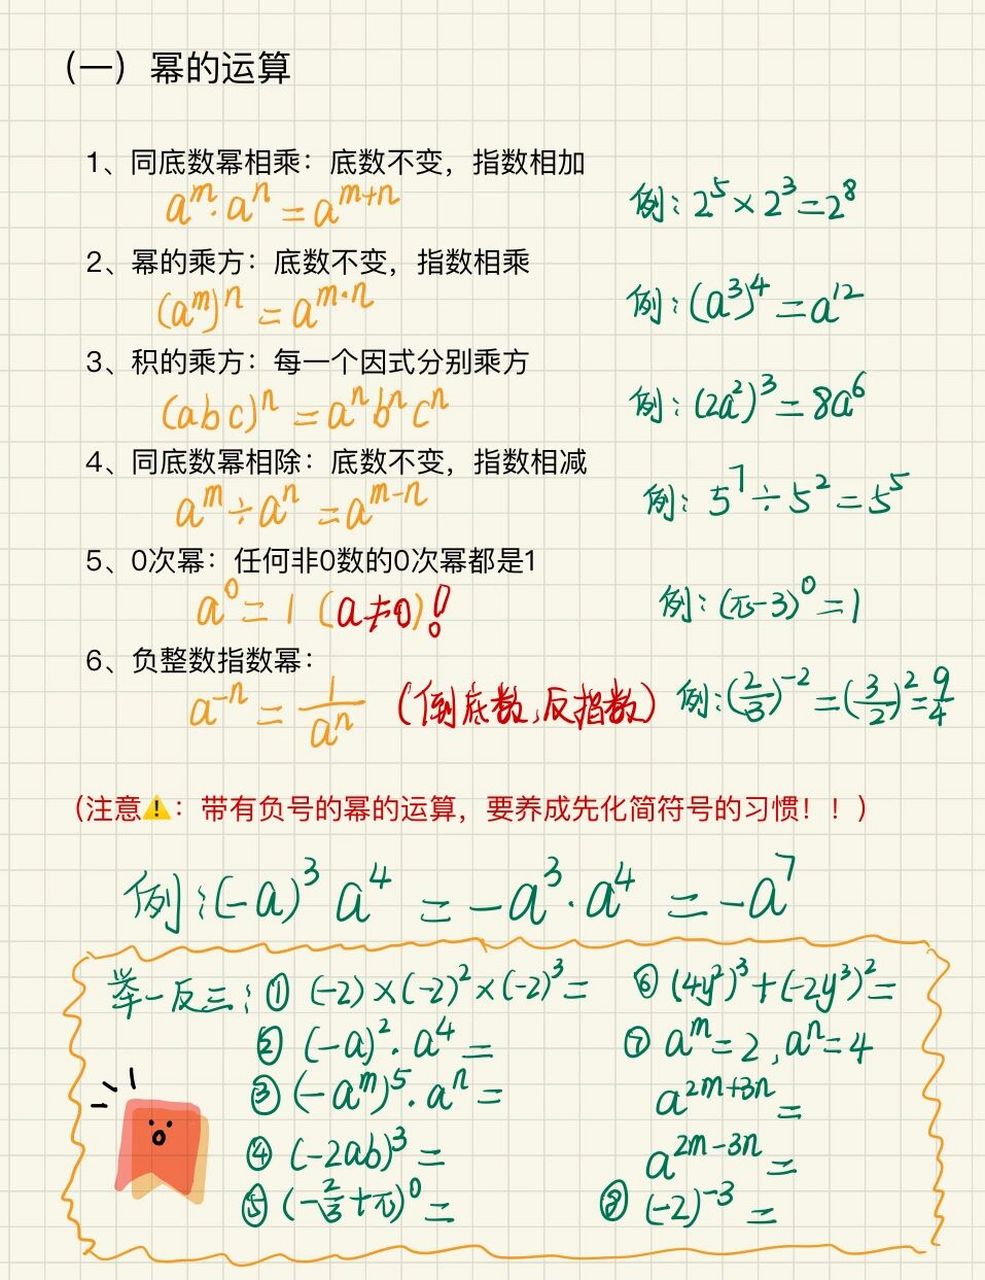 （一）幂的运算
1、同底数幂相乘：底数不变，指数相加
aᵐ·aⁿ=aᵐ⁺ⁿ
例：2⁵×2³=2⁸
2、幂的乘方：底数不变，指数相乘
(aᵐ)ⁿ=a^{m·n}
例：(a³)⁴=a¹²
3、积的乘方：每一个因式分别乘方
(abc)ⁿ=aⁿbⁿcⁿ
例：(2a²)³=8a⁶
4、同底数幂相除：底数不变，指数相减
aᵐ÷aⁿ=aᵐ⁻ⁿ
例：5⁷÷5²=5⁵
5、0次幂：任何非0数的0次幂都是1
a⁰=1（a≠0）！
例：(π-3)⁰=1
6、负整数指数幂：
a⁻ⁿ=1/aⁿ（倒底数，反指数）
例：(2/3)⁻²=(3/2)²=9/4
（注意⚠️：带有负号的幂的运算，要养成先化简符号的习惯！！）
例：(-a)³a⁴=-a³·a⁴=-a⁷
举一反三：①(-2)×(-2)²×(-2)³=
②(-a)²·a⁴=
③(-aᵐ)⁵·aⁿ=
④(-2ab)³=
⑤(-2/3+π)⁰=
⑥(4y²)³+(-2y³)²=
⑦aᵐ=2,aⁿ=4
a²ᵐ⁺³ⁿ=
a²ᵐ⁻³ⁿ=
⑧(-2)⁻³=